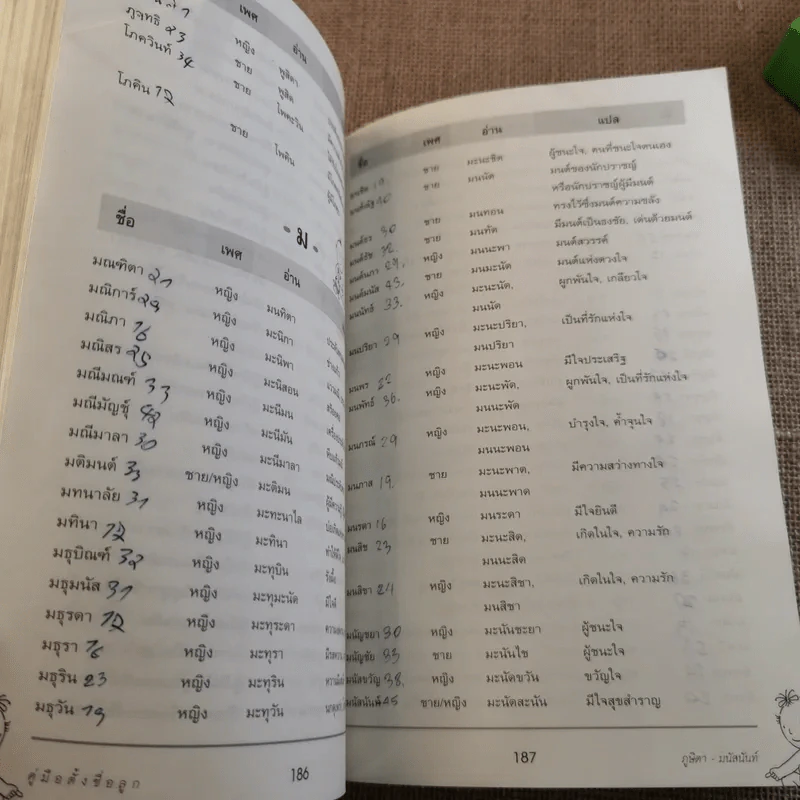 เพศ อ่าน
ภูจทธิ 23 หญิง ภูสิตา
โภควินท์ 34 ชาย ภูสิต
ชาย โพคะวิน
โภคิน 12 ชาย โพคิน
- ม -
ชื่อ เพศ อ่าน
มณฑิตา 21 หญิง มนทิตา
มณิการ์ 29 หญิง มะนิกา
มณิภา 16 หญิง มะนิพา
มณิสร 25 หญิง มะนิสอน
มณีมณฑ์ 33 หญิง มะนีมน
มณีมัญชุ์ 42 หญิง มะนีมัน
มณีมาลา 30 หญิง มะนีมาลา
มติมนต์ 33 ชาย/หญิง มะติมน
มทนาลัย 31 หญิง มะทะนาไล
มทินา 12 หญิง มะทินา
มธุบิณฑ์ 32 หญิง มะทุบิน
มธุมนัส 31 หญิง มะทุมะนัด
มธุรดา 12 หญิง มะทุระดา
มธุรา 16 หญิง มะทุรา
มธุริน 23 หญิง มะทุริน
มธุวัน 19 หญิง มะทุวัน
คู่มือตั้งชื่อลูก 186
ชื่อ เพศ อ่าน แปล
มนชิต 19 ชาย มะนะชิด ผู้ชนะใจ, คนที่ชนะใจตนเอง
มนต์ณัฐ 40 ชาย มนนัด มนต์ของนักปราชญ์
หรือนักปราชญ์ผู้มีมนต์
มนต์ธร 30 ชาย มนทอน ทรงไว้ซึ่งมนต์ความขลัง
มนต์ธัช 32. ชาย มนทัด มีมนต์เป็นธงชัย, เด่นด้วยมนต์
มนต์นภา 29. หญิง มนนะพา มนต์สวรรค์
มนต์มนัส 43. ชาย มนมะนัด มนต์แห่งดวงใจ
มนนัทธ์ 33. หญิง มะนะนัด, ผูกพันใจ, เกลียวใจ
มนนัด
มนปริยา 29 หญิง มะนะปริยา, เป็นที่รักแห่งใจ
มนปริยา
มนพร 22 หญิง มะนะพอน มีใจประเสริฐ
มนพัทธ์ 36. หญิง มะนะพัด, ผูกพันใจ, เป็นที่รักแห่งใจ
มนนะพัด
มนภรณ์ 29 หญิง มะนะพอน, บำรุงใจ, ค้ำจุนใจ
มนนะพอน
มนภาส 19. ชาย มะนะพาด, มีความสว่างทางใจ
มนนะพาด
มนรดา 16 หญิง มนระดา มีใจยินดี
มนสิช 23 ชาย มะนะสิด, เกิดในใจ, ความรัก
มนนะสิด
มนสิชา 24 หญิง มะนะสิชา, เกิดในใจ, ความรัก
มนสิชา
มนัญชยา 30 หญิง มะนันชะยา ผู้ชนะใจ
มนัญชัย 33 ชาย มะนันไช ผู้ชนะใจ
มนัสขวัญ 38. หญิง มะนัดขวัน ขวัญใจ
มนัสนันท์ 45 ชาย/หญิง มะนัดสะนัน มีใจสุขสำราญ
187 ภูษิตา - มนัสนันท์